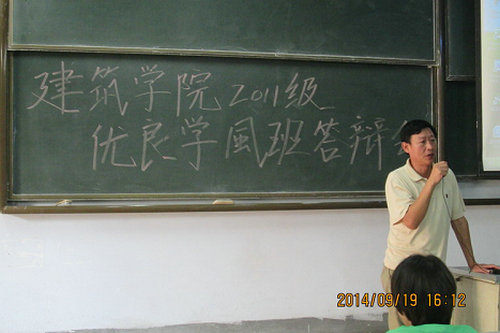 建筑学院2011级
优良学風班答辩会
2014/09/19 16:12